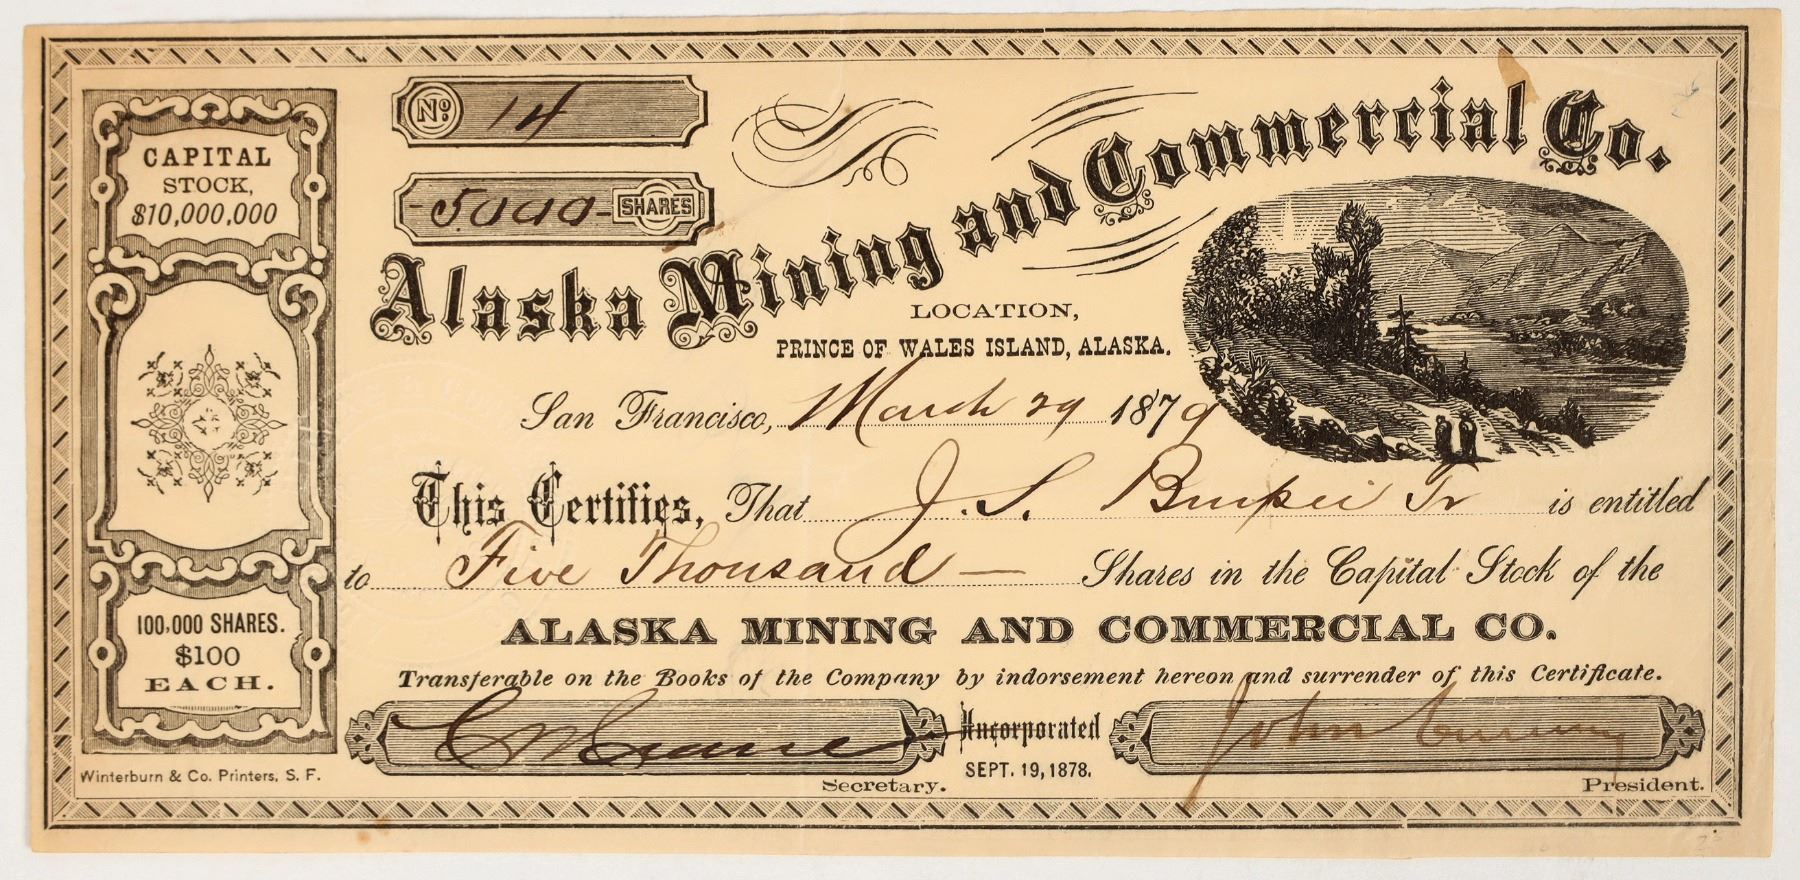 CAPITAL
STOCK,
$10,000,000
100,000 SHARES.
$100
EACH.
Winterburn & Co. Printers, S. F.
No. 14
-5000- SHARES
Alaska Mining and Commercial Co.
LOCATION,
PRINCE OF WALES ISLAND, ALASKA.
San Francisco, March 29 1879
This Certifies, That J. S. is entitled
to Five Thousand — Shares in the Capital Stock of the
ALASKA MINING AND COMMERCIAL CO.
Transferable on the Books of the Company by indorsement hereon and surrender of this Certificate.
Incorporated
SEPT. 19, 1878.
John
Secretary.
President.